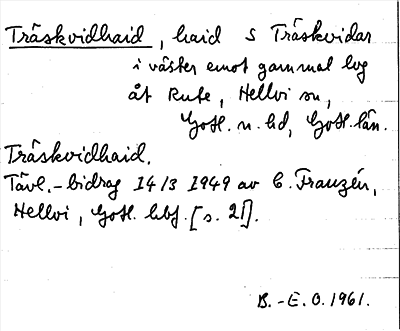 Träskvidhaid, haid S Träskvidar
i väster emot gammal hog
åt Rute, Hellvi sn,
Gotl. n. hd, Gotl. län.
Träskvidhaid.
Tävl.-bidrag 14/3 1949 av C. Franzén,
Hellvi, Gotl. hbf. [s. 21].
B.-E.O. 1961.